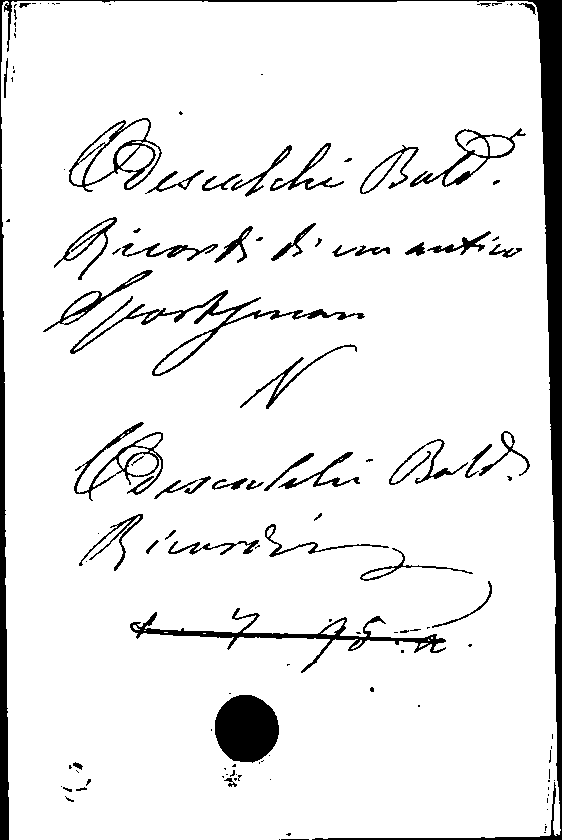 Odescalchi Bald.
Ricordi di un antico
Sportsman
N
Odescalchi Bald.
Ricordi